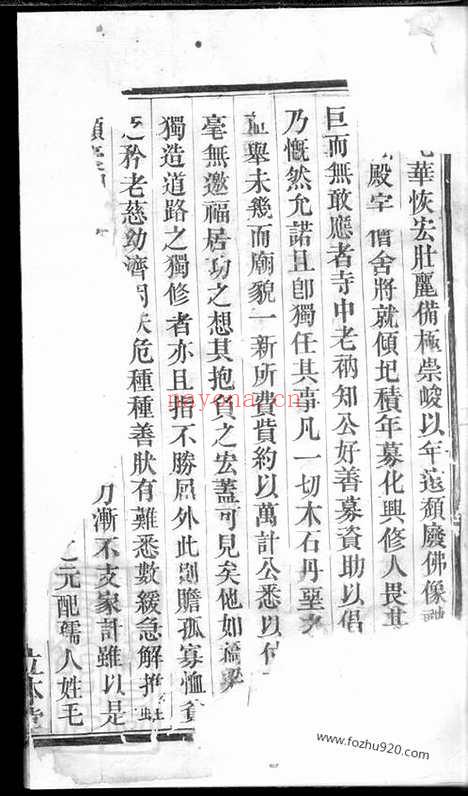 華恢宏壯麗備極崇峻以年遠頹廢佛像
殿宇僧舍將就傾圮積年募化興修人畏其
巨而無敢應者寺中老衲知公好善募資助以倡
乃慨然允諾且卽獨任其事凡一切木石丹堊
舉未幾而廟貌一新所費貲約以萬計公悉以付
毫無邀福居功之想其抱負之宏蓋可見矣他如橋梁
獨造道路之獨修者亦且指不勝屈外此則贍孤寡恤貧
矜老慈幼濟困扶危種種善狀有難悉數緩急解推
漸不支家計雖以是
元配孺人姓毛
nayona.cn
www.fozhu920.com